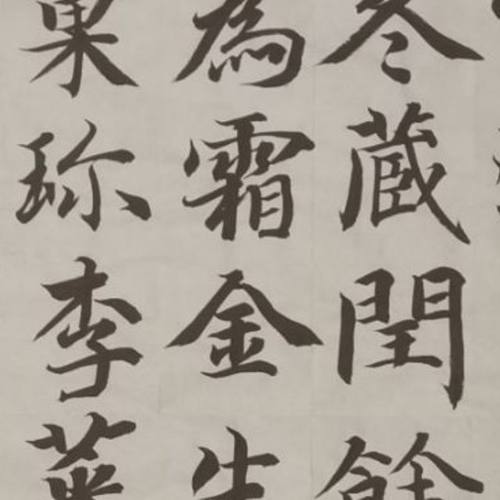 冬蔵閏餘
為霜金生
果珎李菜